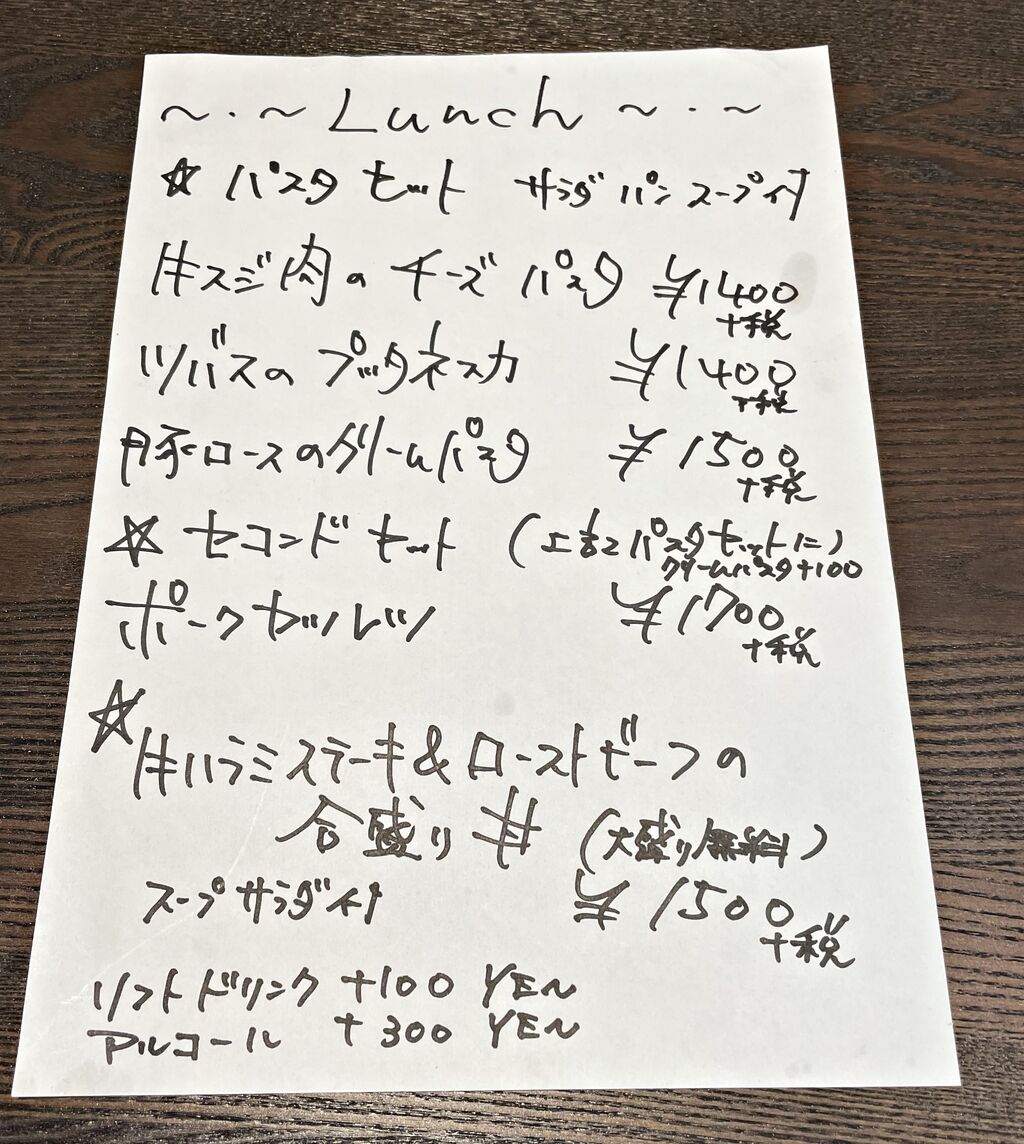 ~・~ Lunch ~・~
☆ パスタセット サラダ パン スープ付
牛スジ肉の チーズ パスタ ¥1400
+税
ツバスの プッタネスカ ¥1400
+税
豚ロースのクリームパスタ ¥1500
+税
☆ セコンドセット (上記パスタセットに)
クリームパスタ+100
ポークカツレツ ¥1700
+税
☆
牛ハラミステーキ&ローストビーフの
合盛り丼 (大盛り無料)
スープサラダ付 ¥1500
+税
ソフトドリンク +100 YEN
アルコール +300 YEN